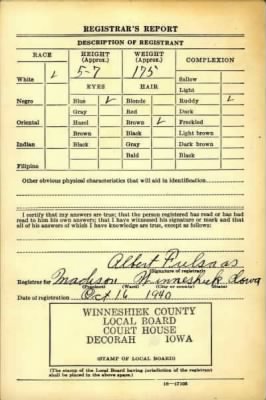 REGISTRAR'S REPORT
DESCRIPTION OF REGISTRANT
RACE HEIGHT (Approx.) WEIGHT (Approx.) COMPLEXION
White ✓ 5-7 175 Sallow
Light
EYES HAIR
Negro Blue ✓ Blonde Ruddy ✓
Gray Red Dark
Oriental Hazel Brown ✓ Freckled
Brown Black Light brown
Indian Black Gray Dark brown
Bald Black
Filipino
Other obvious physical characteristics that will aid in identification
I certify that my answers are true; that the person registered has read or has had
read to him his own answers; that I have witnessed his signature or mark and that
all of his answers of which I have knowledge are true, except as follows:
Albert
(Signature of registrar)
Registrar for Madison Winneshiek Iowa
(Precinct) (Ward) (City or county) (State)
Date of registration Oct 16 1940
WINNESHIEK COUNTY
LOCAL BOARD
COURT HOUSE
DECORAH IOWA
(STAMP OF LOCAL BOARD)
(The stamp of the Local Board having jurisdiction of the registrant
shall be placed in the above space.)
16—17105